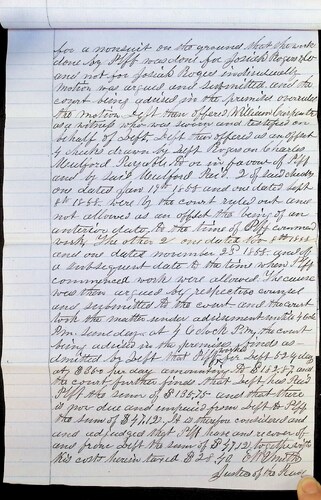 for a nonsuit on the ground that the work
done by Plff was done for Josiah Rogers & Co
and not for Josiah Rogers individually
motion was argued and submitted, and the
court being advised in the premises overrules
the motion. Deft then offered William
as a witness who was sworn and testified on
behalf of Deft. Deft then offered as an offset
4 checks drawn by Deft Rogers on Charles
Mulford Payable to or in favour of Plff
and by said Mulford Paid. 2 of said checks
one dated Jan 19th 1855 and one dated Sept
8th 1855 were by the court ruled out and
not allowed as an offset the being of an
anterior date to the time of Plff commenced
work. The other 2 one dated Nov 8th 1855
and one dated november 25th 1855 and of
a subsequent date to the time when Plff
commenced work were allowed. The cause
was then argued by respective counsel
and submitted to the court and the court
took the matter under advisement until 4 Oclk
Pm. same day. at 4 Oclock P.m. the court
being advised in the premises finds as
admitted by Deft that Plff worked for Deft 52 1/4 days
at $ per day amounting to $
the court further finds that Deft has Paid
Plff the sum of $ and that there
is now due and unpaid from Deft to Plff
the sum of $47,12. It is therefore considered
and adjudged that Plff have and recover of
and from Deft the sum of $47,12 together with
his costs herein taxed $
Justice of the Peace